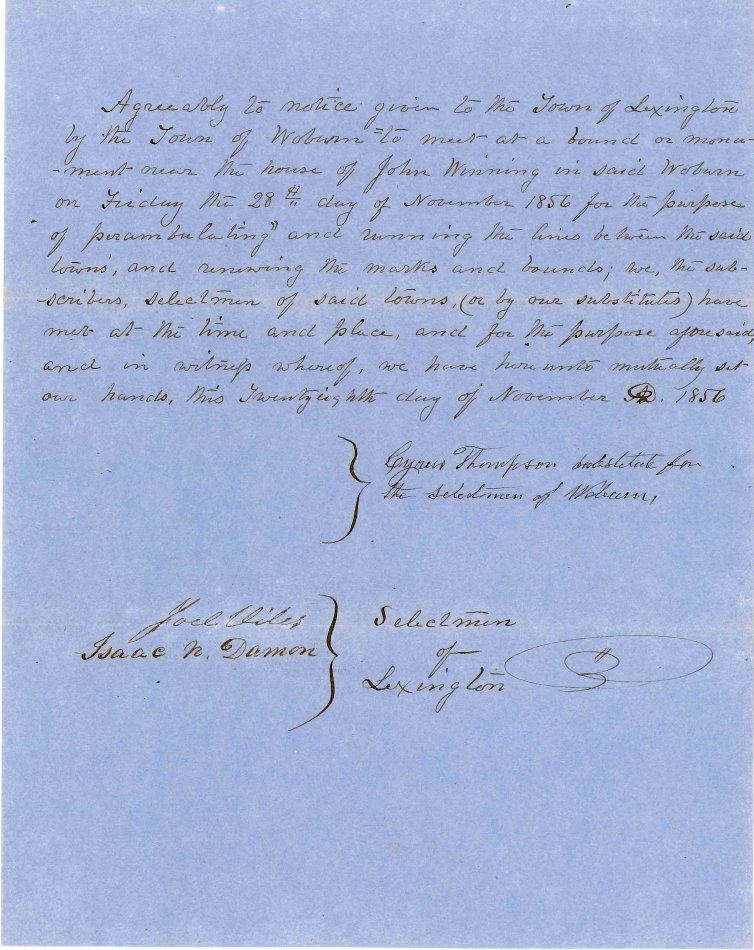 Agreeably to notice given to the Town of Lexington
by the Town of Woburn "to meet at a bound or monu-
-ment near the house of John Winning in said Woburn
on Friday the 28th day of November 1856 for the purpose
of perambulating" and running the lines between the said
towns, and renewing the marks and bounds; we, the sub-
-scribers, selectmen of said towns, (or by our substitutes) have
met at the time and place, and for the purpose aforesaid,
and in witness whereof, we have hereunto mutually set
our hands, this Twentyeighth day of November 1856
Cyrus Thompson substitute for
the selectmen of Woburn,
Joel Viles
Isaac N. Damon
Selectmen
of
Lexington